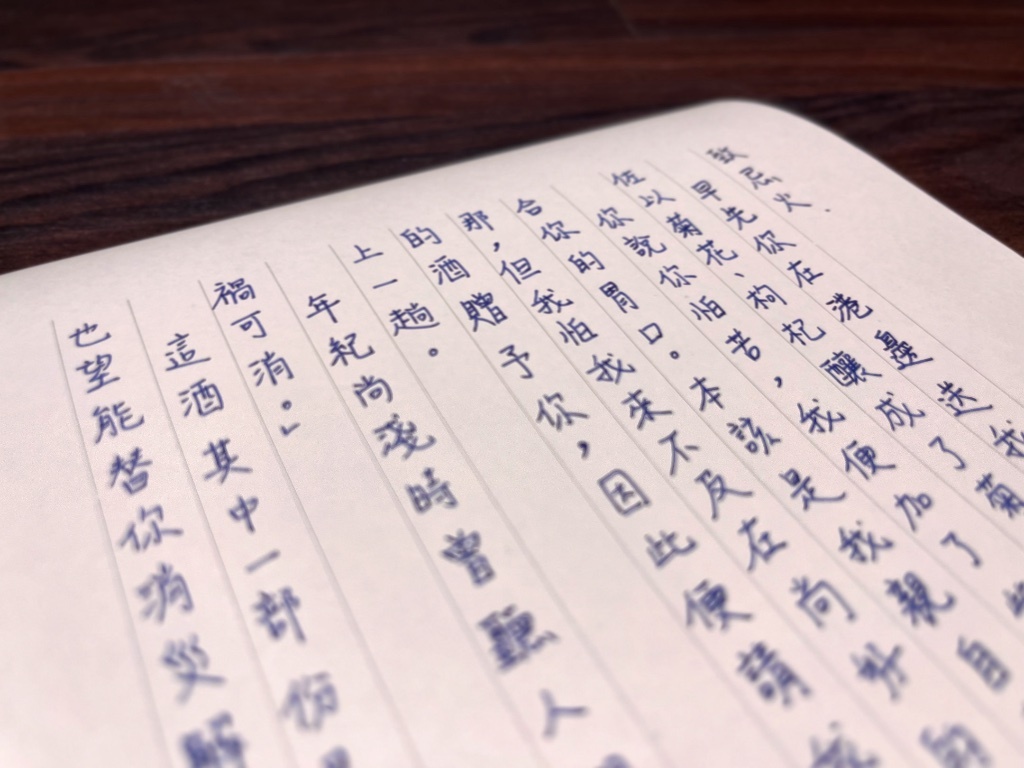 致忌火.
早先你在港邊送我
佐以菊花、枸杞釀成了菊
你說你怕苦，我便加了些
合你的胃口。本該是我親自
那，但我怕我來不及在尚
的酒贈予你，因此便請
上一趟。
年紀尚淺時曾聽人
禍可消。」
這酒其中一部份
也望能替你消災解